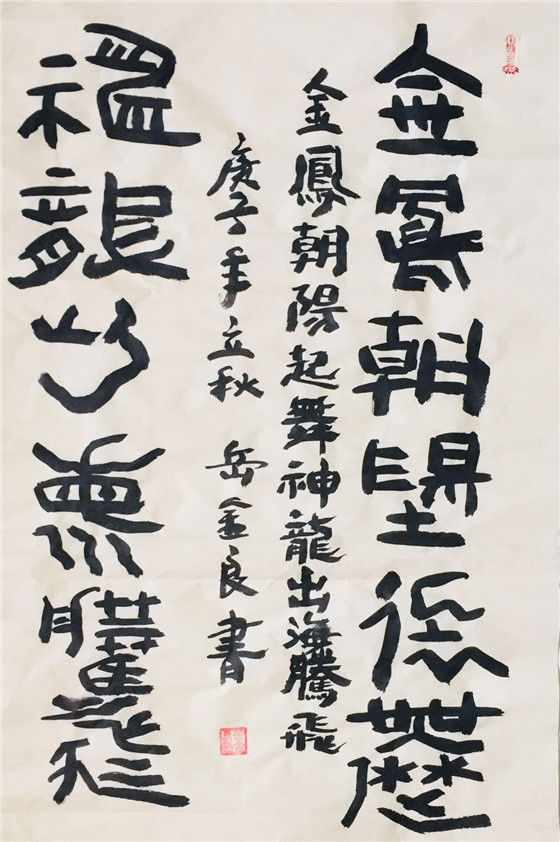 金鳳朝陽起舞
金鳳朝陽起舞神龍出海騰飛
庚子年立秋 岳金良書
神龍出海騰飛